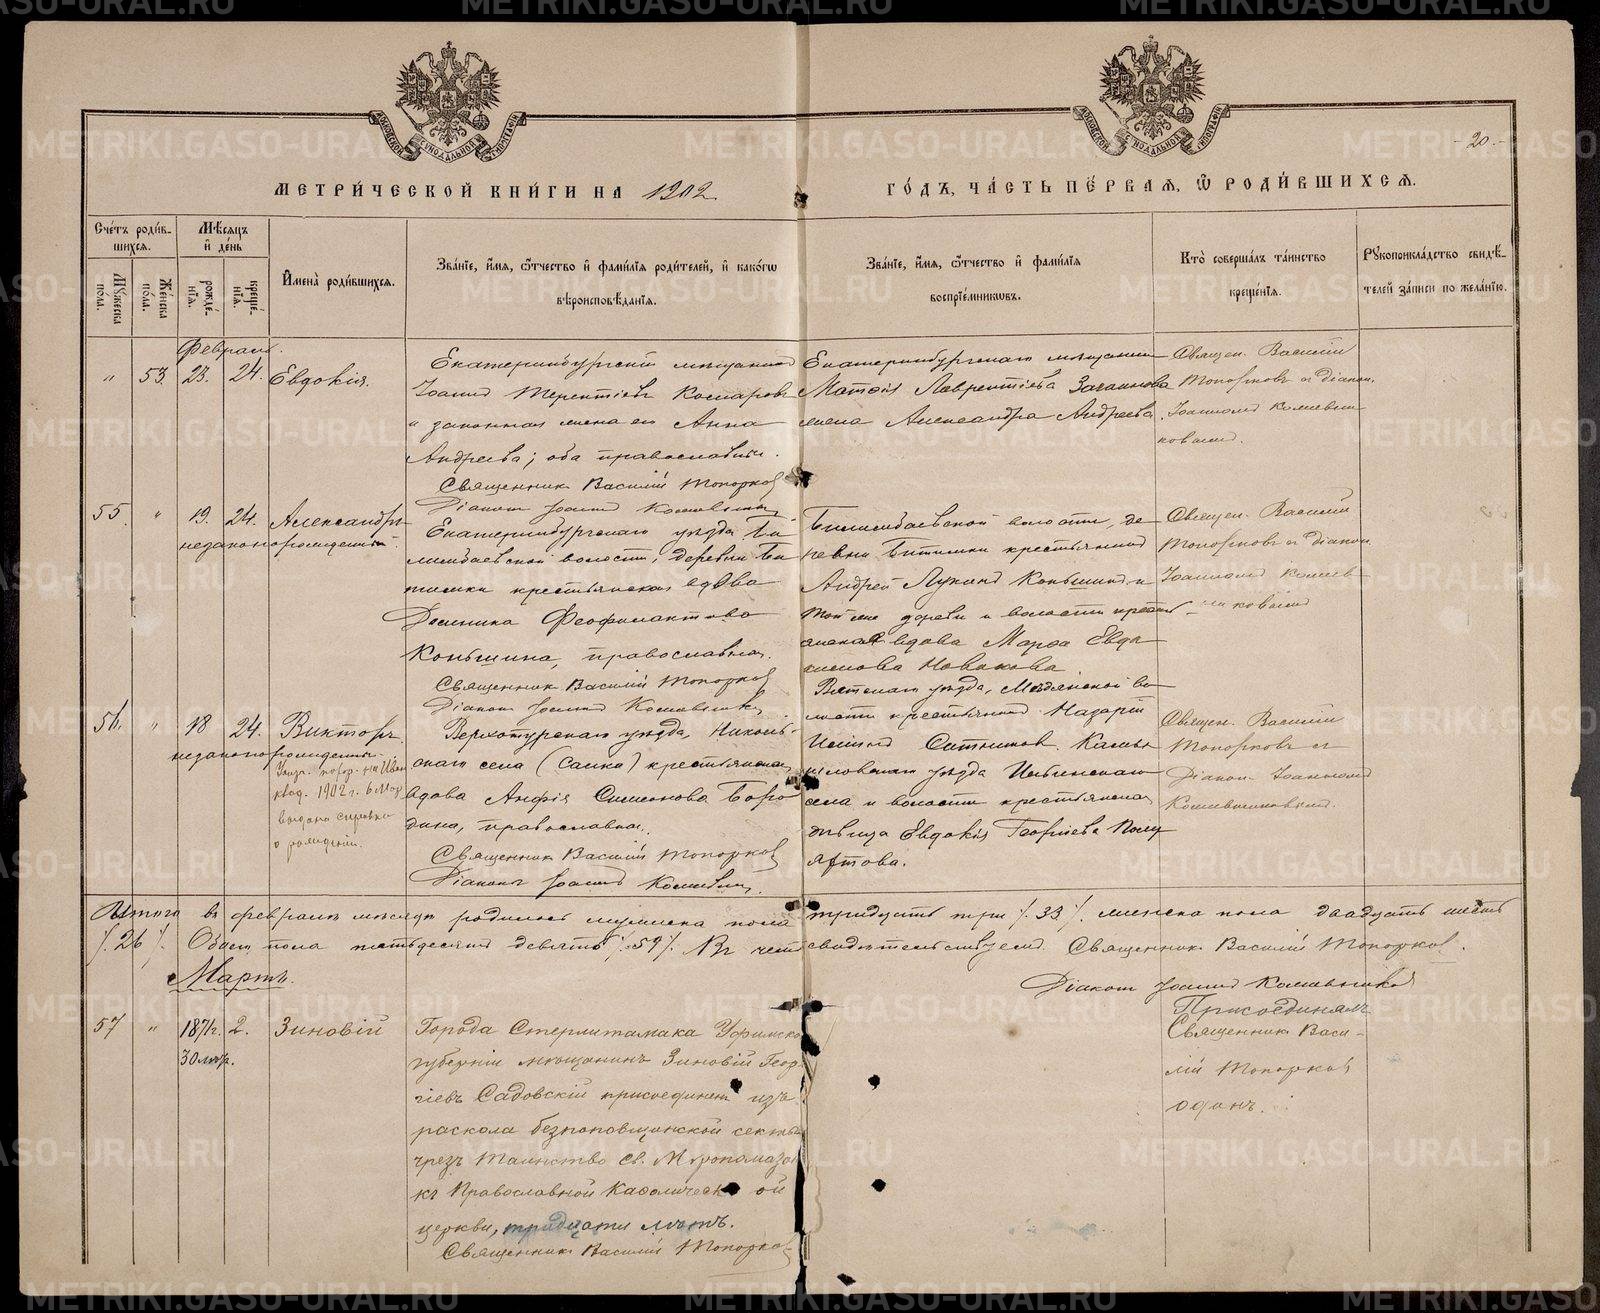 METRIKI.GASO-URAL.RU
- 20. -
МОСКОВСКОЙ СѴНОДАЛЬНОЙ ТИПОГРАФІИ
МЕТРИ́ЧЕСКОЙ КНИ́ГИ НА 1902
ГО́ДЪ, ЧА́СТЬ ПЕ́РВАЯ, Ѽ РОДИ́ВШИХСЯ.
Сче́тъ роди́в-
шихся.
Мꙋжеска по́ла.
Же́нска по́ла.
Мѣ́сяцъ
и҆ де́нь
рожде́нїѧ.
креще́нїѧ.
И҆мена̀ роди́вшихсѧ.
Зва́нїе, и҆́мѧ, ѻ҆́тчество и҆ фами́лїѧ роди́телей, и҆ како́гѡ
вѣроисповѣ́данїѧ.
Зва́нїе, и҆́мѧ, ѻ҆́тчество и҆ фами́лїѧ
воспрїе́мникѡвъ.
Кто̀ соверша́лъ та́инство
креще́нїѧ.
Рꙋкоприкла́дство свидѣ́-
телей за́писи по жела́нїю.
Февраль.
" 53. 23. 24. Евдокія.
Екатеринбургскій мѣщанинъ
Іоаннъ Терентіевъ Комаровъ
и законная жена его Анна
Андреева; оба православные.
Священникъ Василій Топорков
Діаконъ Іоаннъ
Екатеринбургскаго мѣщанина
Матѳія Лаврентіева
жена Александра Андреева.
Священ. Василій
Топорковъ съ діакон.
Іоанномъ
55. " 19. 24. Александръ
незаконорожденный.
Екатеринбургскаго уѣзда, Би-
лимбаевской волости, деревни Би-
тимки крестьянская вдова
Домника Феофилактова
Коньшина, православная.
Священникъ Василій Топорков
Діаконъ Іоаннъ
Билимбаевской волости, де-
ревни Битимки крестьянинъ
Андрей Лукинъ Коньшинъ и
той же дерев. и волости кресть-
янская вдова Марѳа Евдо-
кимова Новикова.
Священ. Василій
Топорковъ съ діакон.
Іоанномъ
56. " 18 24. Викторъ
незаконорожденны.
1902 г. 6 Мар
выдана справка
о рожденіи.
Верхотурскаго уѣзда, Николь-
скаго села (Салка) крестьянская
вдова Анфія Симеонова Боро-
дина, православная.
Священникъ Василій Топорков
Діаконъ Іоаннъ
Вятскаго уѣзда, Медянской во-
лости крестьянинъ Назарій
Ситниковъ. Камы-
шловскаго уѣзда
села и волости крестьянская
дѣвица Евдокія Георгіева Полу-
яхтова.
Священ. Василій
Топорковъ съ
Діакон. Іоанномъ
Итого въ февралѣ мѣсяцѣ родилось мужеска пола тридцать три /.33/. женска пола двадцать шесть
/.26/. Обоего пола пятьдесятъ девять /.59/. Въ чемъ свидѣтельствуемъ. Священникъ Василій Топорков.
Діаконъ Іоаннъ
Мартъ.
57 " 1871г. 2. Зиновій
30
Города Стерлитамака Уфимско
губерніи мѣщанинъ Зиновій Геор-
гіевъ Садовскій присоединенъ изъ
раскола безпоповщинской секты
чрезъ таинство Св. Мѵропомазан
къ Православной Каѳолической
церкви, тридцати лѣтъ.
Священникъ Василій Топорков
Присоединялъ
Священникъ Васи-
лій Топорков
одинъ.